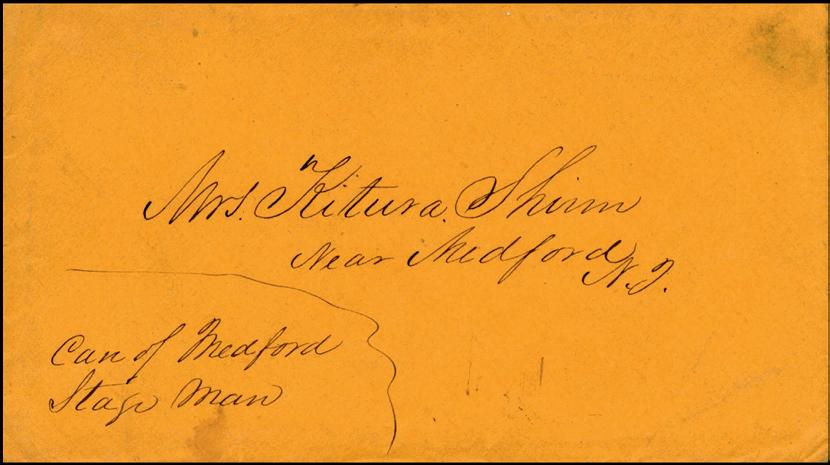 Mrs. Kitura Shinn
Near Medford
N. J.
Care of Medford
Stage Man